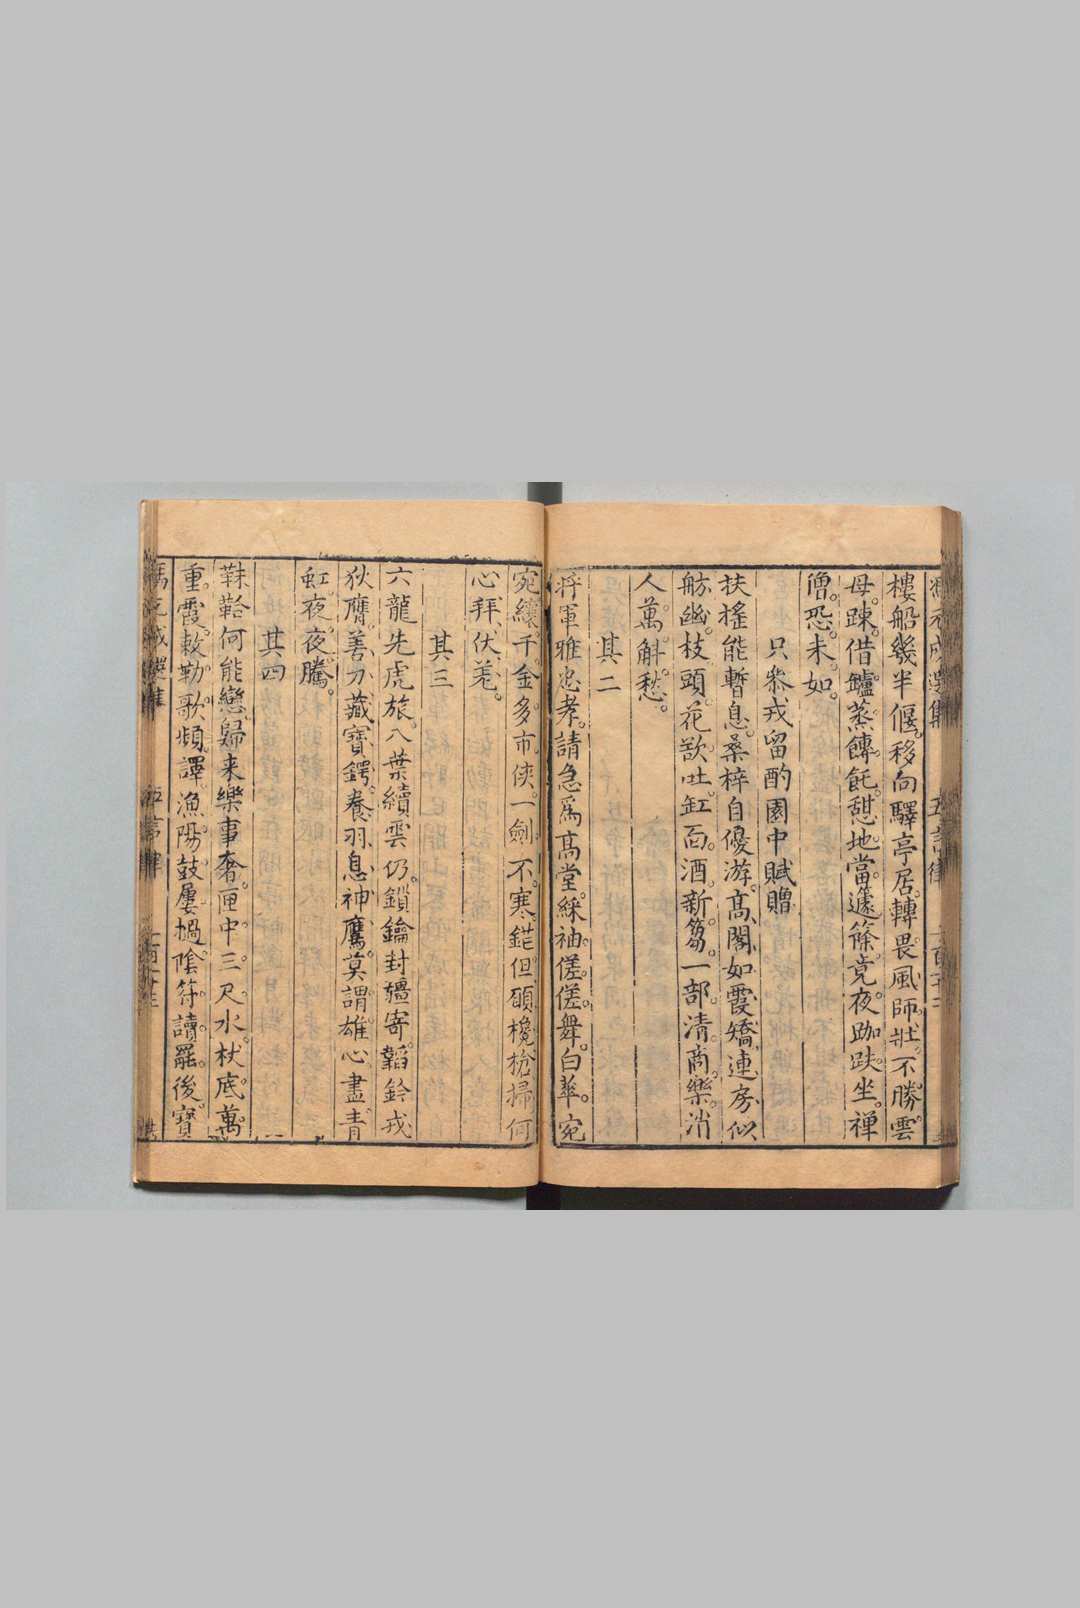 馮元成選集 五言律
樓船幾半偃。移向驛亭居。轉畏風師壯。不勝雲
母疎。借鑪蒸餺飥。憇地當籧篨。竟夜跏趺坐。禅
僧恐未如。
只参戎留酌園中賦贈
扶搖能暫息。桑梓自優游。高閣如霞矯。連房似
舫幽。枝頭花欲吐。缸面酒新篘。一部清商樂。消
人萬斛愁。
其二
将軍雅忠孝。請急爲高堂。綵袖傞傞舞。白華宛
宛纕。千金多市俠。一劍不寒鋩。但願欃槍掃。何
心拜伏羌。
其三
六龍先虎旅。八葉續雲仍。鎖鑰封疆寄。韜鈐戎
狄膺。善刀藏寶鍔。養羽息神鷹。莫謂雄心盡。青
虹夜夜騰。
其四
韎韐何能戀。歸来樂事奢。匣中三尺水。杖底萬
重霞。敕勒歌頻譯。漁陽鼓屢撾。陰符讀罷後。寶
五言律